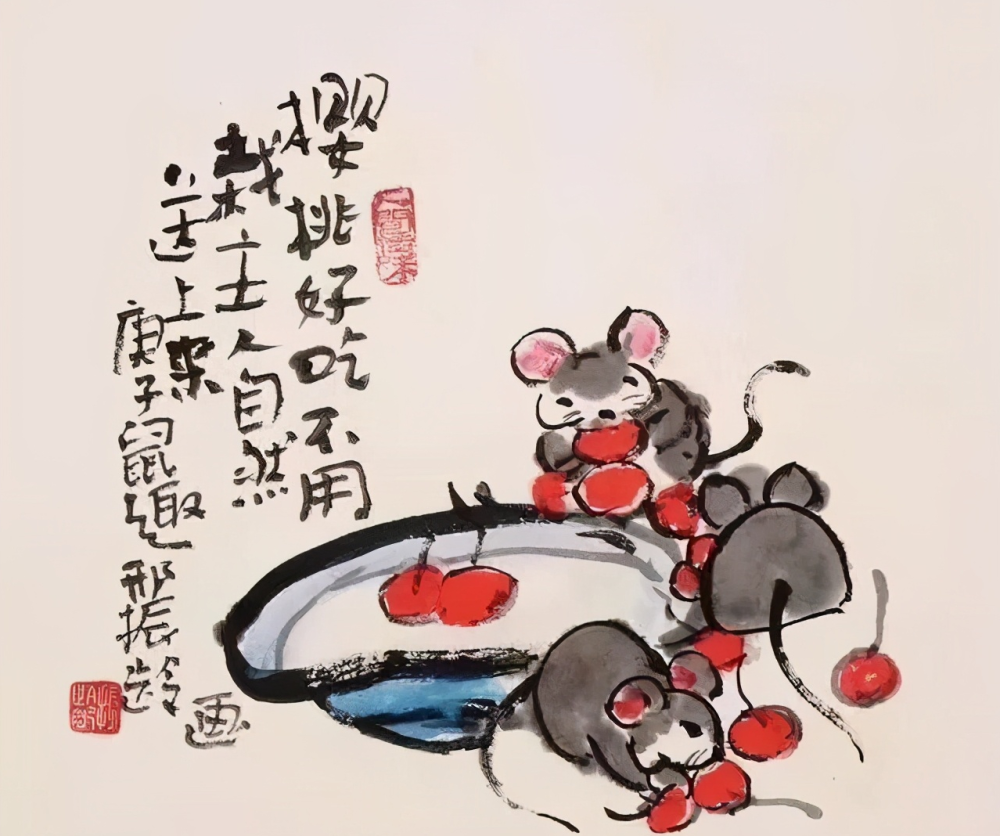 樱桃好吃不用
栽主人自然
送上架
庚子鼠趣邢振龄
画